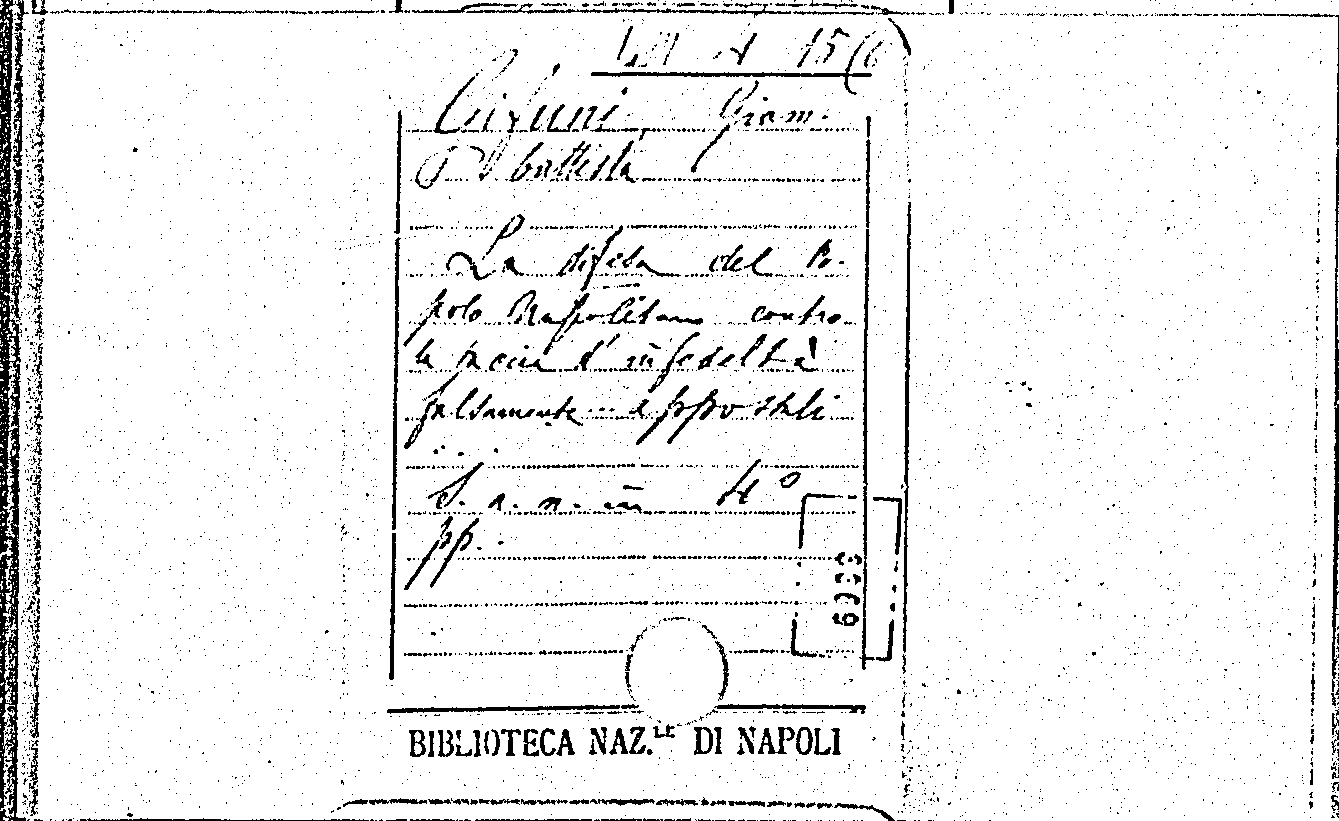 Cifuni, Giam.
battista
La difesa del Po-
polo Napolitano contro
la taccia d'infedeltà
falsamente... appostali
...
S. a. n. in 4°
pp..
6333
BIBLIOTECA NAZ.LE DI NAPOLI